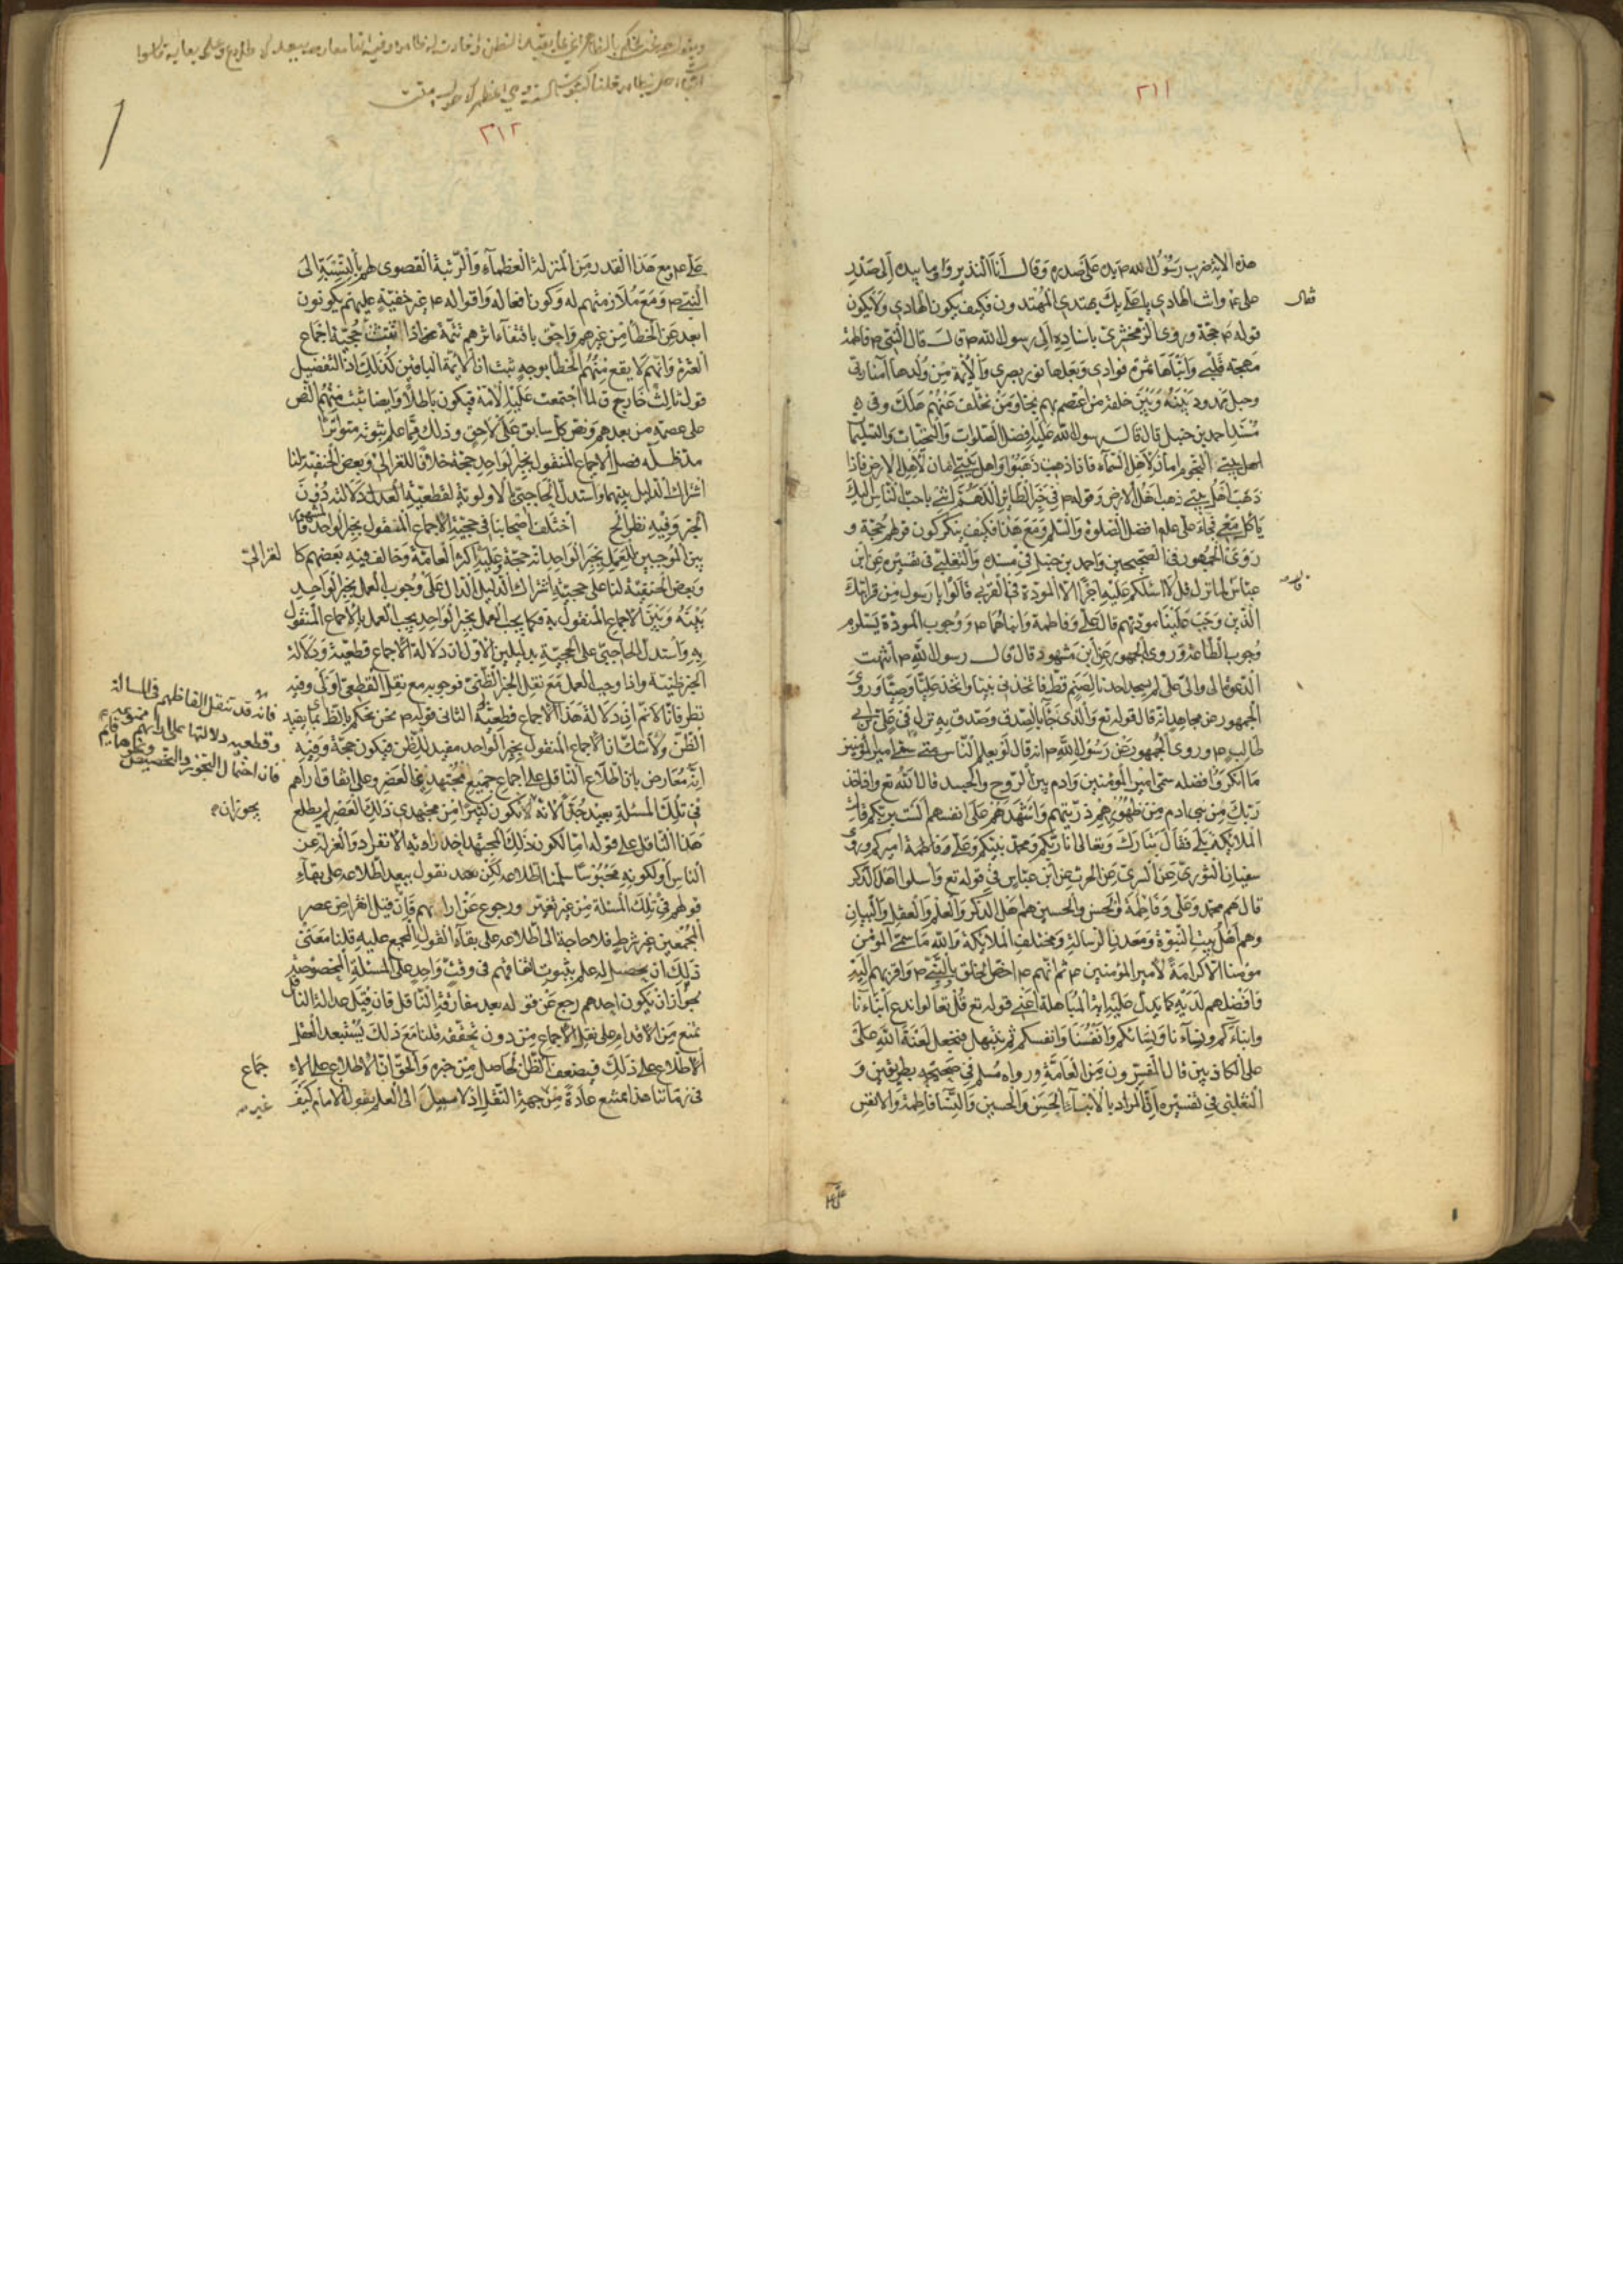 ٢١١
هذه الاية ضرب رسول الله ص يده على صدره وقال انا النذير واومأ بيده الى صدر
على ع وانت الهادي يا على بك يهتدى المهتدون فكيف يكون الهادي ولا يكون
قوله ص حجة وروى الزمخشرى باسناده الى رسول الله ص قال قال النبى ص فاطمة
مهجة قلبى وابناها ثمرة فوادى وبعلها نور بصرى والائمة من ولدها امنا ربى
وحبل ممدود بينه وبين خلقه من اعتصم بهم نجا ومن تخلف عنهم هلك وفى
مسند احمد بن حنبل قال قال رسول الله عليه افضل الصلوات والتحيات والتسليما
اهل بيتى النجوم امان لاهل السماء فاذا ذهبت ذهبوا واهل بيتى امان لاهل الارض فاذا
ذهب اهل بيتى ذهب اهل الارض وقوله ص فى خبر الطائر اللهم ائتنى باحب الناس اليك
ياكل معى فجاء على عليه افضل الصلوة والسلم ومع هذا فكيف ينكر كون قولهم حجة و
روى الجمهور فى الصحيحين واحمد بن حنبل فى مسنده والثعلبى فى تفسيره عن ابن
عباس لما نزل قل لا اسئلكم عليه اجرا الا المودة فى القربى قالوا يا رسول من قرابتك
الذين وجبت علينا مودتهم قال على وفاطمة وابناهما ص ووجوب المودة يستلزم
وجوب الطاعة وروى الجمهور عن ابن مسعود قال قال رسول الله ص انتهت
الدعوة الى والى على لم يسجد احدنا لصنم قط فاتخذنى نبيا واتخذ عليا وصيا وروى
الجمهور عن مجاهد انه قال قوله تع والذى جاء بالصدق وصدق به نزل فى على بن ابى
طالب ص وروى الجمهور عن رسول الله ص انه قال لو يعلم الناس متى سمى امير المؤمنين
ما انكروا فضله سمى امير المؤمنين وادم بين الروح والجسد قال الله تع واذ اخذ
ربك من بنى ادم من ظهورهم ذريتهم واشهدهم على انفسهم الست بربكم قالت
الملائكة بلى فقال تبارك وتعالى انا ربكم ومحمد نبيكم وعلى وفاطمة اميركم وروى
سفيان الثورى عن السرى عن الحرث عن ابن عباس فى قوله تع واسلوا اهل الذكر
قال هم محمد وعلى وفاطمة والحسن والحسين هم اهل الذكر والعلم والعقل والبيان
وهم اهل بيت النبوة ومعدن الرسالة ومختلف الملائكة والله ما سمى المؤمن
مؤمنا الا كرامة لامير المؤمنين ص ثم انهم ص اخص الخلق بالنبى ص واقربهم اليه
وافضلهم لديه كما يدل عليه اية المباهلة اعنى قوله تع قل تعالوا ندع ابناءنا
وابناءكم ونساءنا ونساءكم وانفسنا وانفسكم ثم نبتهل فنجعل لعنة الله على
على الكاذبين قال المفسرون من العامة ورواه مسلم فى صحيحه بطريقين و
الثعلبى فى تفسيره ان المراد بالابناء الحسن والحسين والنساء فاطمة والانفس
٢١٢
على ع ومع هذا القدر من المنزلة العظماء والرتبة القصوى لهم بالنسبة الى
النبى ص ومع ملازمتهم له وكون افعاله واقواله ص غير خفية عليهم يكونون
ابعد عن الخطأ من غيرهم واحق باقتفاء اثرهم تتمة محاذا اتقنت حجية اجماع
العترة وانهم لا يقع منهم الخطأ بوجه ثبت ان الائمة الباقين كذلك اذ التفصيل
قول ثالث خارج لما اجتمعت عليه الامة فيكون باطلا وايضا ثبت منهم النص
على عصمة من بعدهم ونص كل سابق على لاحق وذلك مما علم ثبوته متواترا
مد ظله فصل الاجماع المنقول بخبر الواحد حجة خلافا للغزالى وبعض الحنفية لنا
اشتراك الدليل بينهما واستدل الحاجبى بالاولوية لقطعية دلالته دون
الخبر وفيه نظر اختلف اصحابنا فى حجية الاجماع المنقول بخبر الواحد فالمشهور
بين الموجبين للعمل بخبر الواحد انه حجة وعليه اكثر العامة وخالف فيه بعضهم كا
لغزالى
وبعض الحنفية لنا على حجيته اشتراك الدليل الدال على وجوب العمل بخبر الواحد
بينه وبين الاجماع المنقول به فكما يجب العمل بخبر الواحد يجب العمل بالاجماع المنقول
به واستدل الحاجبى على الحجية بدليلين الاول ان دلالة الاجماع قطعية ودلالة
الخبر ظنية واذا وجب العمل مع نقل الخبر الظنى فوجوبه مع نقل القطعى اولى وفيه
نظر فانا لانم ان دلالة هذا الاجماع قطعية الثانى قوله ص نحن نحكم بالظاهر بما يفيد
الظن ولا شك ان الاجماع المنقول بخبر الواحد مفيد للظن فيكون حجة وفيه
انه معارض بان اطلاع الناقل على اجماع جميع مجتهدى العصر وعلى اتفاق اراهم
فى تلك المسئلة بعيد جدا لانه لا يكون كثيرا من مجتهدى ذلك العصر لم يطلع
هذا الناقل على قوله اما لكون ذلك المجتهد اخذ زاوية الانفراد والعزلة عن
الناس او لكونه محبوسا سلمنا اطلاعه لكن بعد نقول يبعد اطلاعه على بقاء
قولهم فى تلك المسئلة من غير تغير ورجوع عن ارايهم فان قيل انقراض عصر
المجمعين غير شرط فلا حاجة الى اطلاعه على بقاء القول المجمع عليه قلنا معنى
ذلك ان يحصل له علم بثبوت اتفاقهم فى وقت واحد على المسئلة المخصوصة
لجواز ان يكون احدهم رجع عن قوله بعد مفارقة الناقل فان قيل عدالة الناقل
تمنع من الاقدام على نقل الاجماع من دون تحققه قلنا مع ذلك يستبعد العقل
الاطلاع على ذلك فيضعف الظن الحاصل من خبره والحق ان الاطلاع على الا
جماع
فى زماننا هذا يمتنع عادة من جهة النقل اذ لا سبيل الى العلم بقول الامام كيف
فانه قد تنقل الفاظهم فى المسالة
وقطعية دلالتها على ارائهم ممنوعة
فان احتمال التجوز والتخصيص